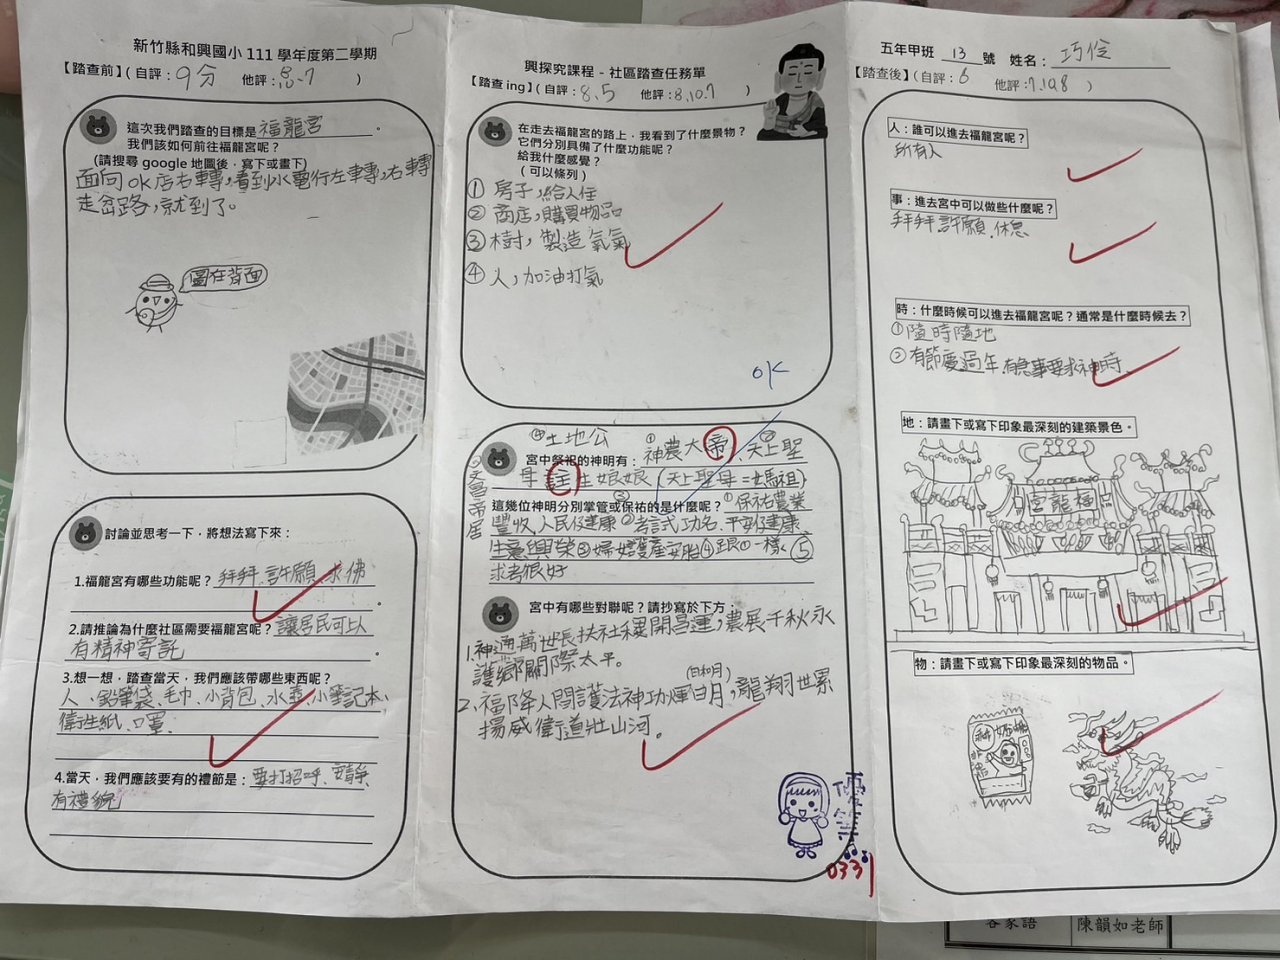 新竹縣和興國小 111 學年度第二學期
【踏查前】(自評：9分 他評：8.7 )
這次我們踏查的目標是福龍宮。
我們該如何前往福龍宮呢？
(請搜尋 google 地圖後，寫下或畫下)
面向OK店右轉，看到水電行左轉，右轉
走岔路，就到了。
圖在背面
討論並思考一下，將想法寫下來：
1.福龍宮有哪些功能呢？拜拜、許願、求佛
。
2.請推論為什麼社區需要福龍宮呢？讓居民可以
有精神寄託。
3.想一想，踏查當天，我們應該帶哪些東西呢？
人、鉛筆袋、毛巾、小背包、水壺、小筆記本、
衛生紙、口罩。
4.當天，我們應該要有的禮節是：要打招呼、安靜
有禮貌
興探究課程－社區踏查任務單
【踏查 ing】(自評：8.5 他評：8,10.7 )
在走去福龍宮的路上，我看到了什麼景物？
它們分別具備了什麼功能呢？
給我什麼感覺？
(可以條列)
① 房子，給人住
② 商店，購買物品
③ 樹，製造氧氣
④ 人，加油打氣
OK
④土地公
宮中祭祀的神明有：①神農大帝、②天上聖
母 註生娘娘 (天上聖母=媽祖)
③
⑤文昌帝君
這幾位神明分別掌管或保祐的是什麼呢？①保祐農業
豐收,人民健康 ②考試功名、平安健康
生意興榮 ③婦女護產安胎 ④跟①一樣 ⑤
求考很好
宮中有哪些對聯呢？請抄寫於下方：
1.神通萬世長扶社稷開昌運，農展千秋永
護鄉關際太平。
(日和月)
2、福降人間護法神功煇日月，龍翔世累
揚威衛道壯山河。
優等
0331
五年甲班 13 號 姓名：巧伶
【踏查後】(自評：6 他評：7.10.8 )
人：誰可以進去福龍宮呢？
所有人
事：進去宮中可以做些什麼呢？
拜拜.許願.休息
時：什麼時候可以進去福龍宮呢？通常是什麼時候去？
①隨時隨地
②有節慶過年.有急事要求神時.
地：請畫下或寫下印象最深刻的建築景色。
宮龍福
物：請畫下或寫下印象最深刻的物品。
客家語
陳韻如老師